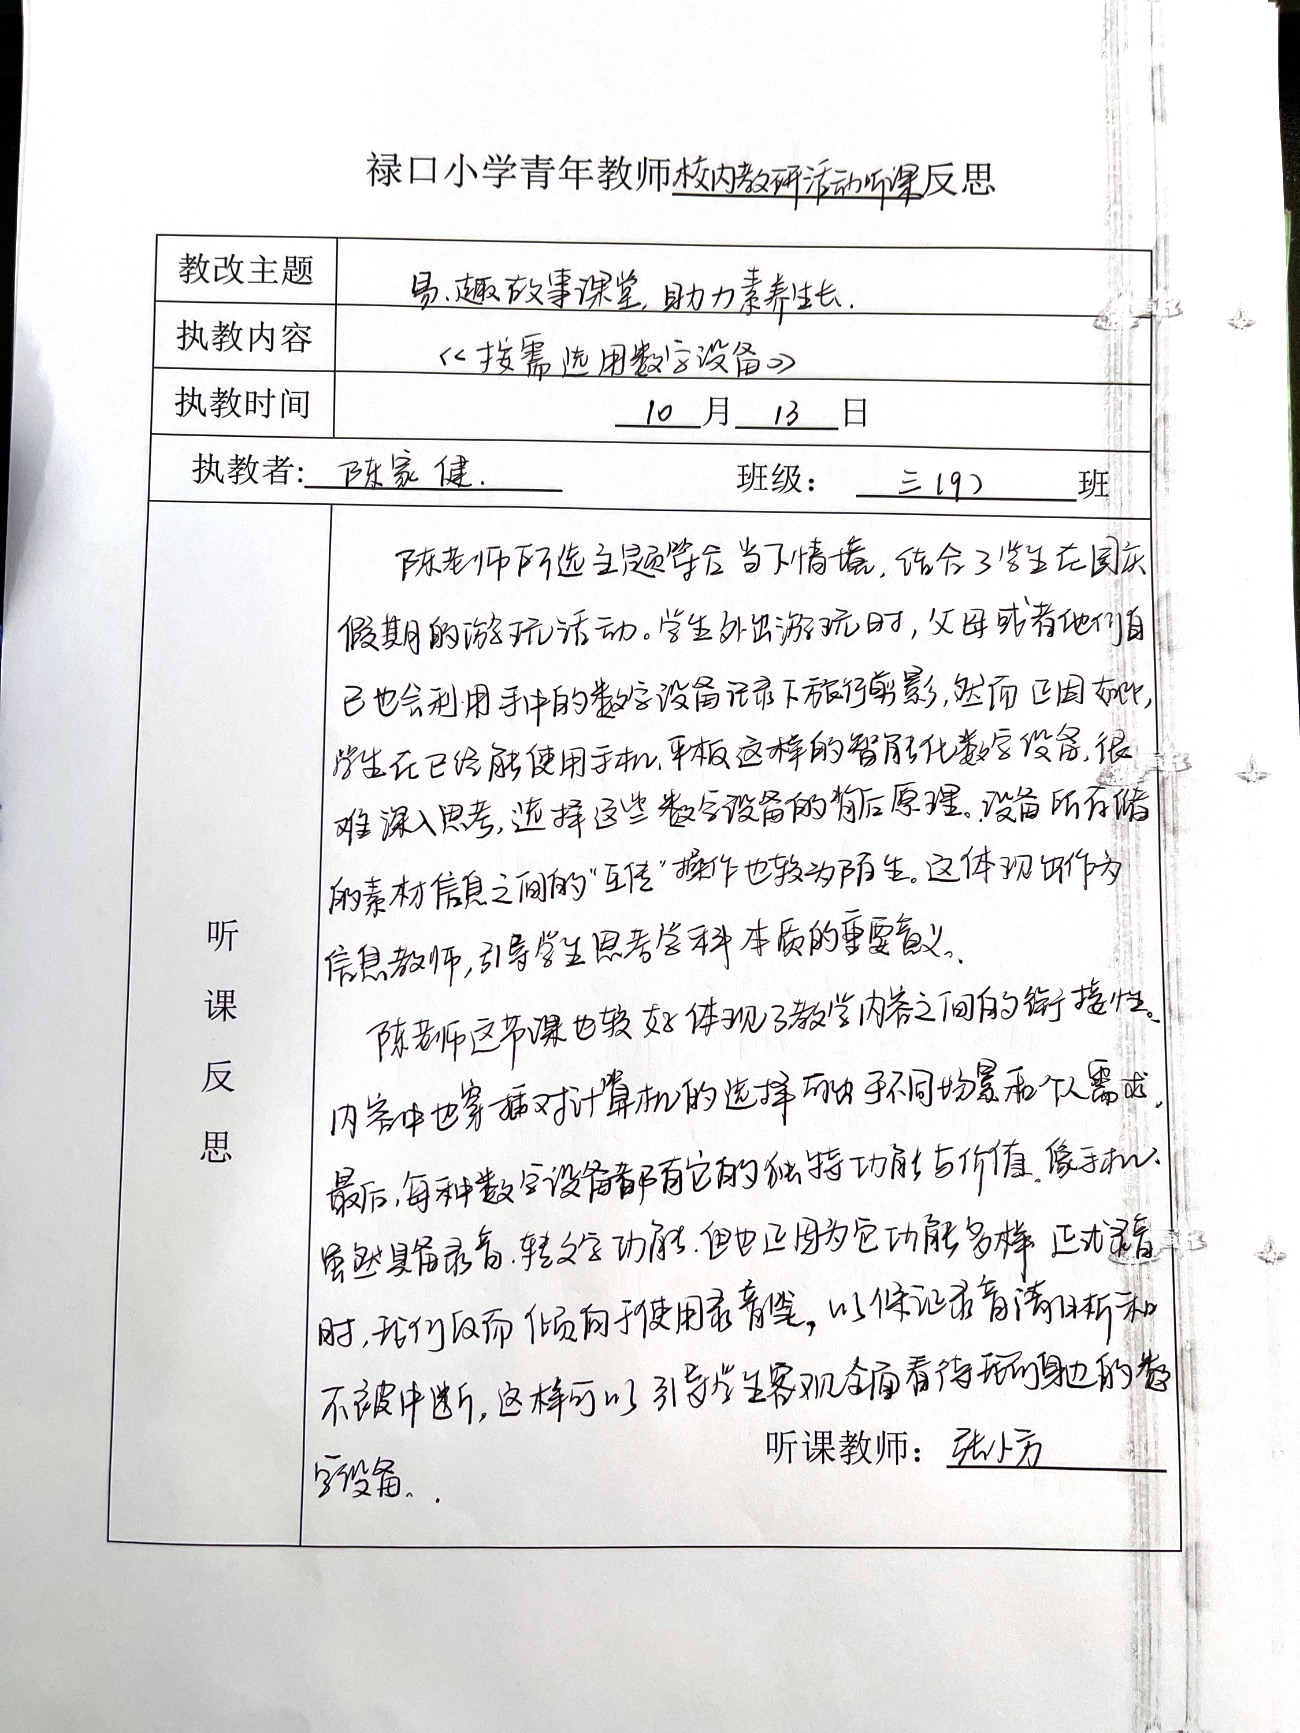 禄口小学青年教师校内教研活动听课反思
教改主题 易、趣故事课堂,助力素养生长.
执教内容 《按需选用数字设备》
执教时间 10月13日
执教者:陈家健. 班级:三(9)班
听课反思
陈老师所选主题契合当下情境,结合了学生在国庆
假期的游玩活动。学生外出游玩时,父母或者他们自
己也会利用手中的数字设备记录下旅行剪影,然而正因如此,
学生在已经能使用手机、平板这样的智能化数字设备,很
难深入思考,选择这些数字设备的背后原理。设备所存储
的素材信息之间的“互传”操作也较为陌生。这体现出作为
信息教师,引导学生思考学科本质的重要意义。
陈老师这节课也较好体现了教学内容之间的衔接性。
内容中也穿插对计算机的选择 于不同场景和个人需求.
最后,每种数字设备都有它的独特功能与价值.像手机、
虽然具备录音、转文字功能.但也正因为它功能多样 正式录音
时,我们反而倾向于使用录音笔,以保证录音清晰和
不被中断,这样可以引导学生客观全面看待我们身边的数
字设备。
听课教师:张小方